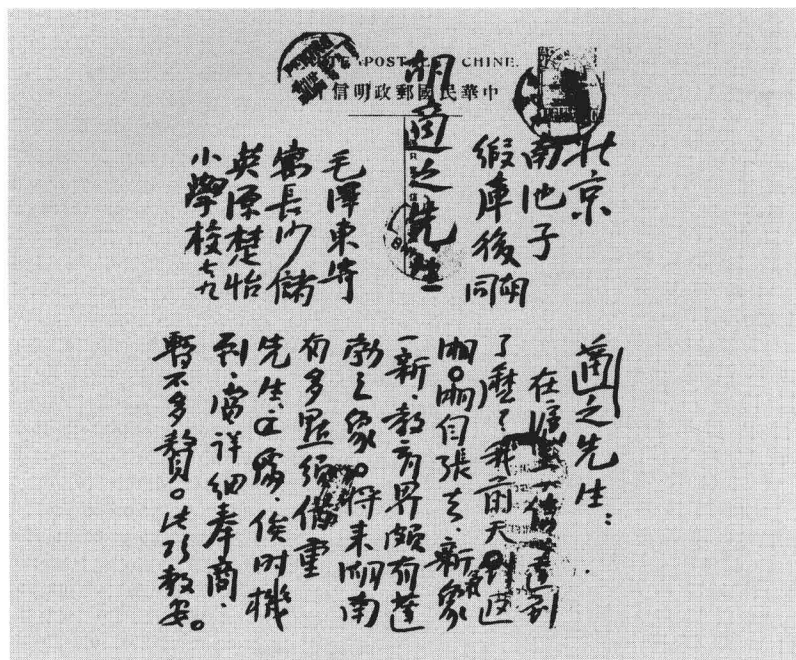 POST CHINE.
中華民國郵政明信片
北京
南池子
緞庫後胡同
胡適之先生
毛澤東寄
寓長沙儲
英源楚怡
小學校 七九
適之先生：
在滬上一信達到
了麼？我前天返
湘。湘自張去，氣象
一新，教育界頗有蓬
勃之象。將來湖南
有多點須借重
先生之處，俟時機
到，當詳細奉商，
暫不多贅。此頌教安。